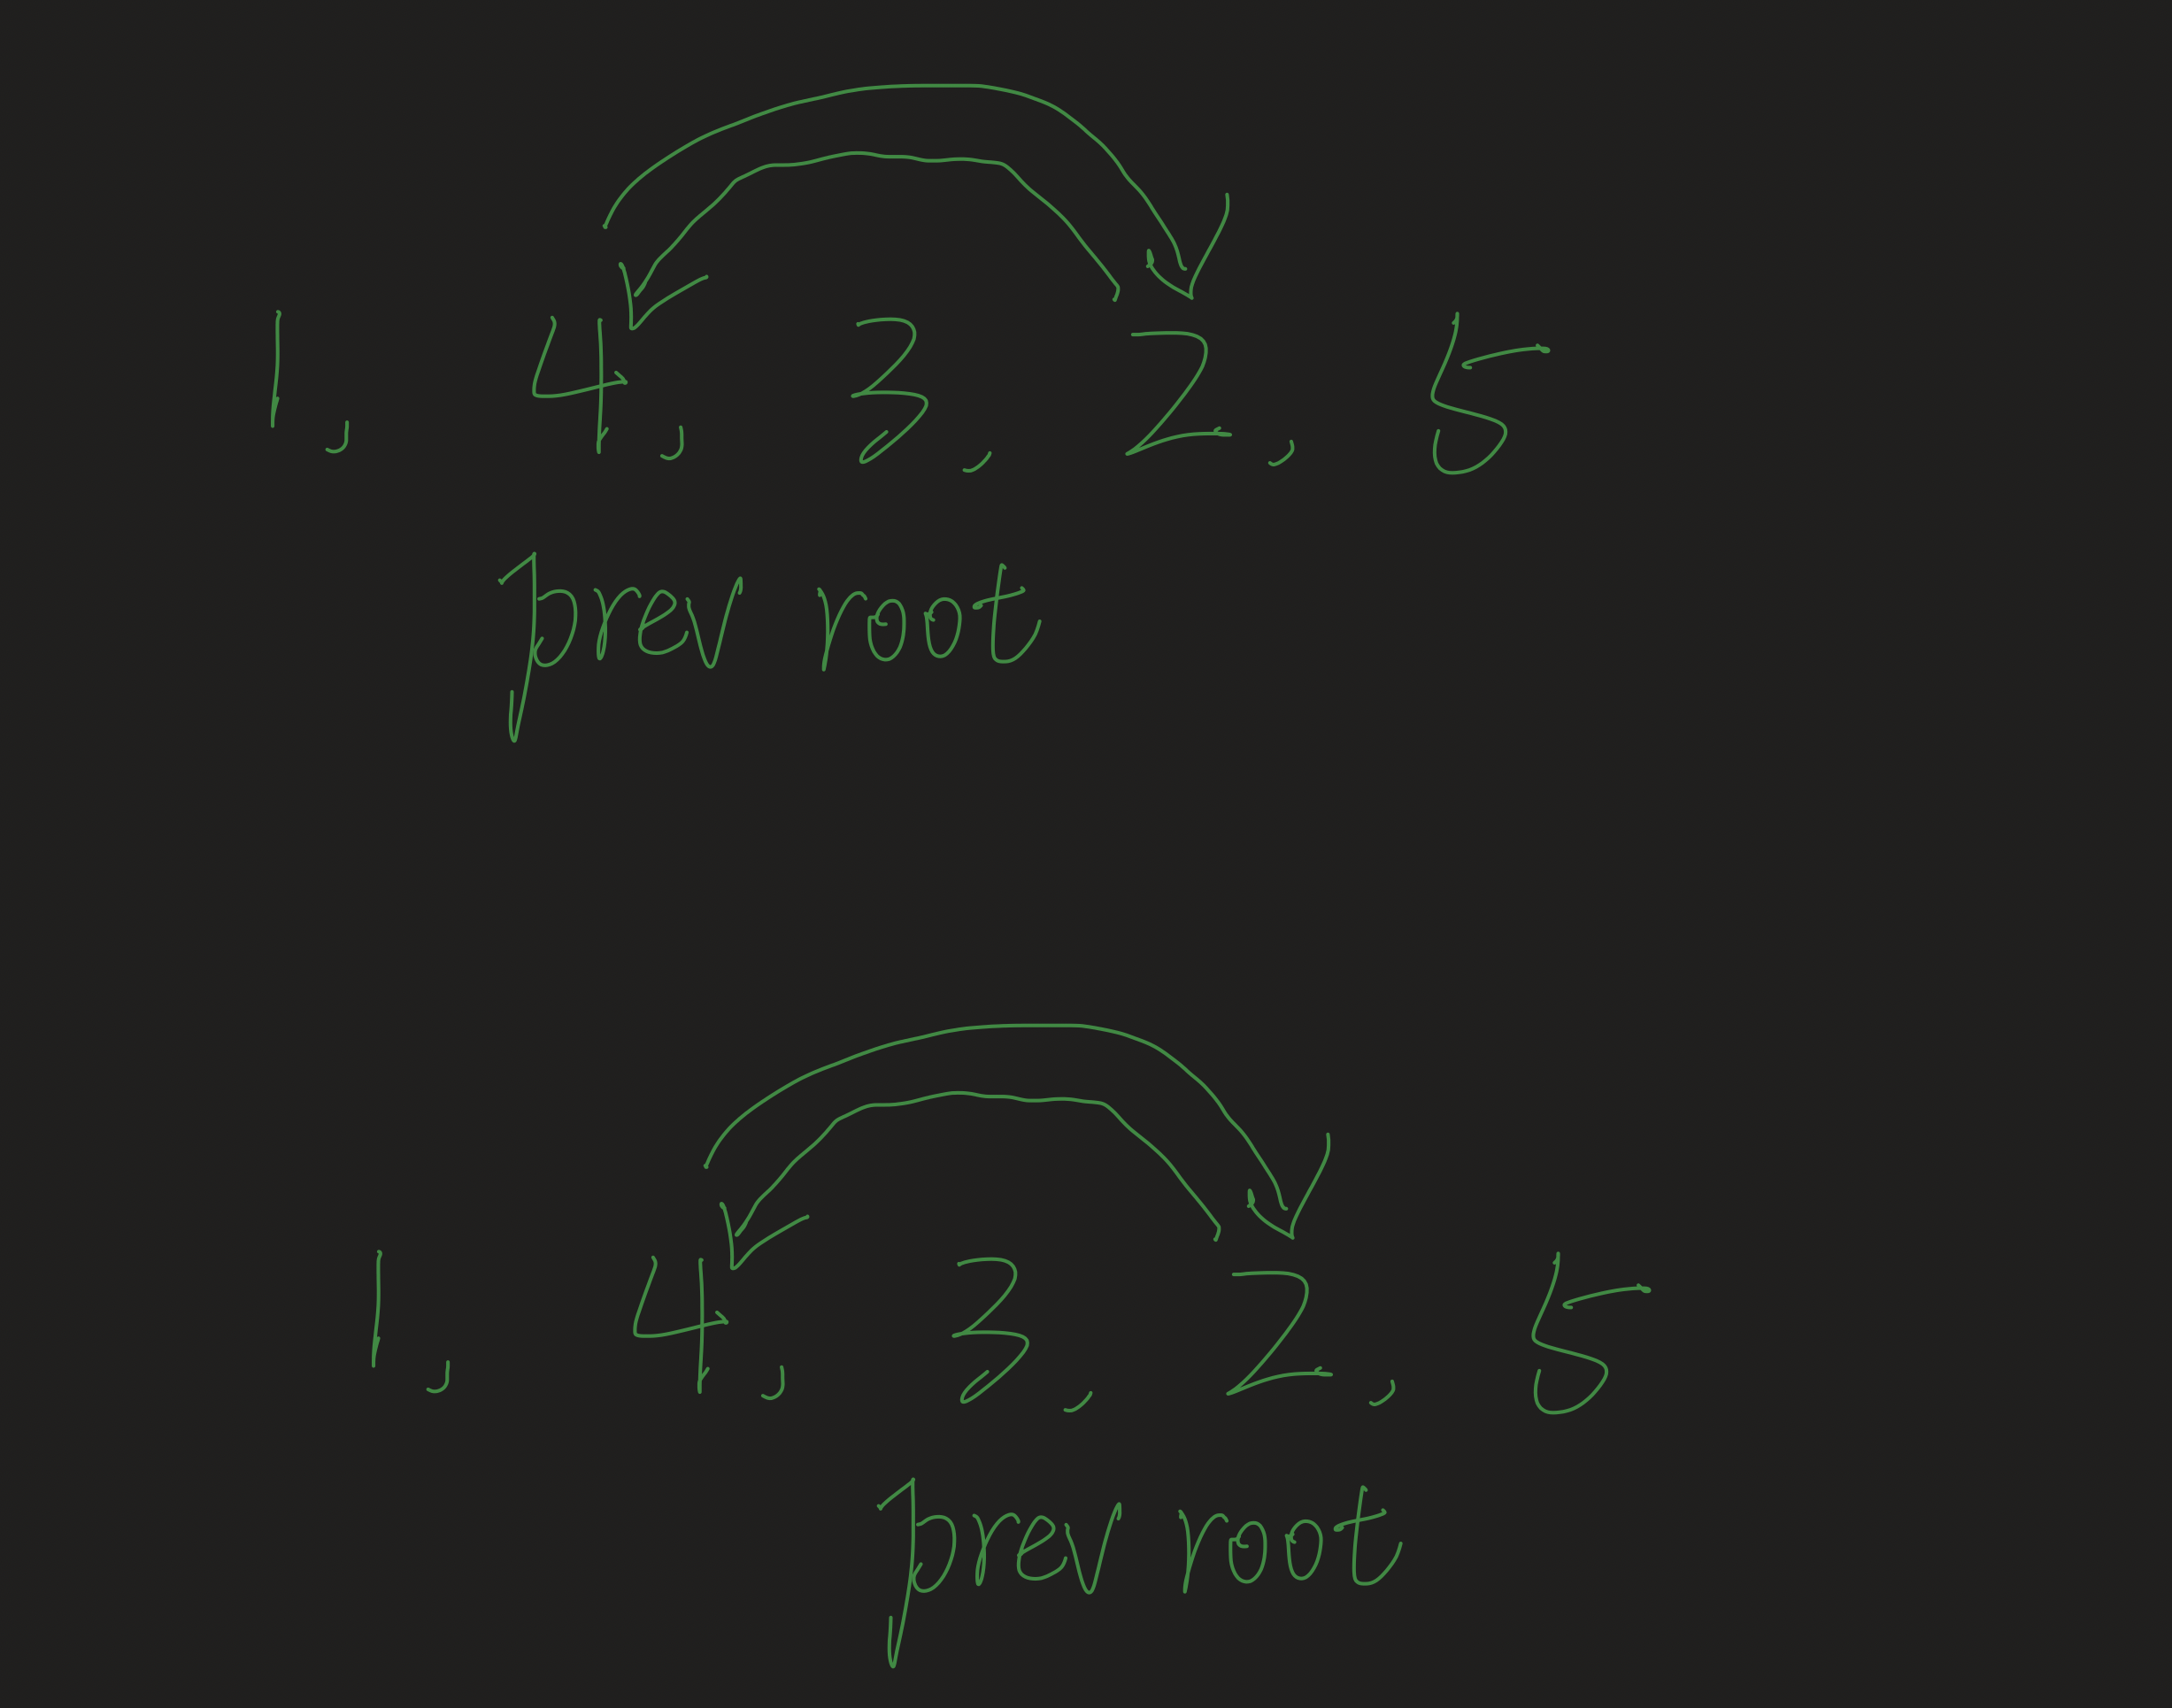 1, 4, 3, 2, 5
prev root
1, 4, 3, 2, 5
prev root